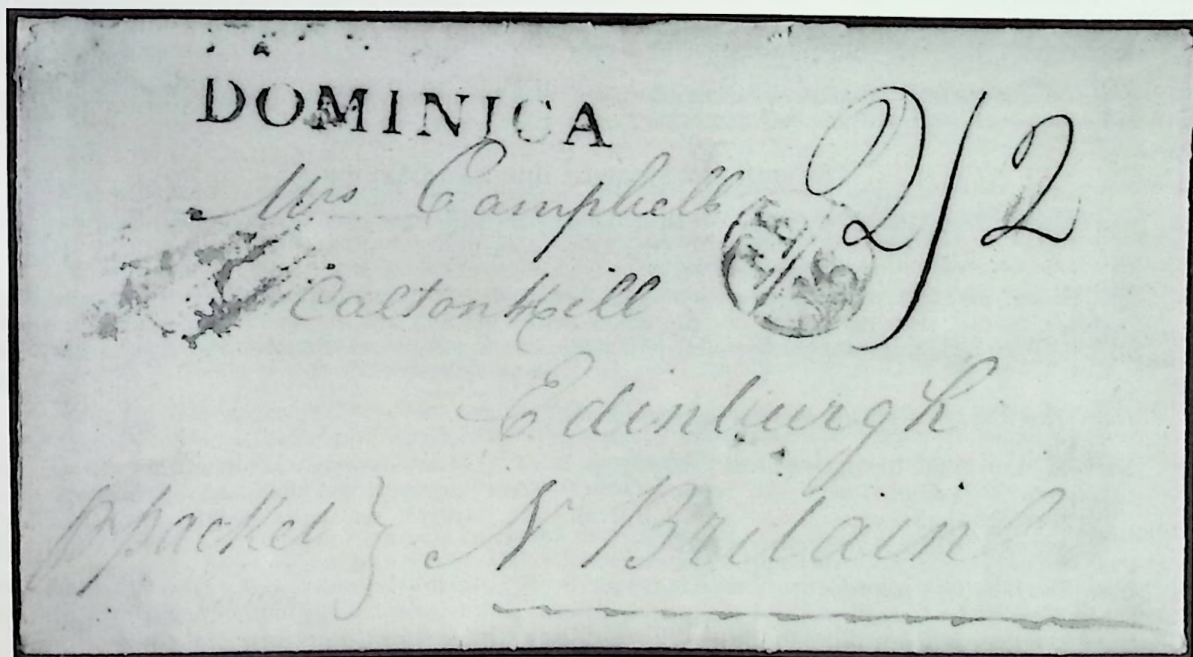 DOMINICA
2/2
Mrs Campbell
Calton Hill
Edinburgh
packet } N Britain